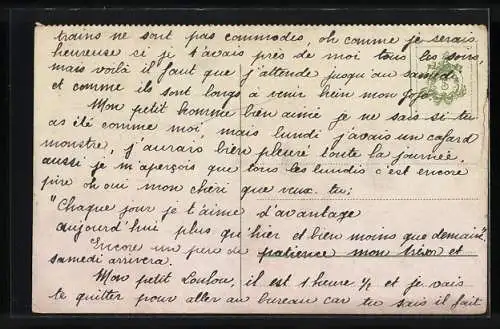 trains ne sont pas commodes, oh comme je serais
heureuse si je t'avais près de moi tous les soirs,
mais voilà il faut que j'attende jusqu'au samedi
et comme ils sont longs à venir hein mon Jojo.
Mon petit homme bien aimé je ne sais si tu
as été comme moi, mais lundi j'avais un cafard
monstre, j'aurais bien pleuré toute la journée,
aussi je m'aperçois que tous les lundis c'est encore
pire oh oui mon chéri que veux-tu:
"Chaque jour je t'aime d'avantage
aujourd'hui plus qu'hier et bien moins que demain".
Encore un peu de patience mon trésor et
samedi arrivera.
Mon petit Loulou, il est 1 heure ½ et je vais
te quitter pour aller au bureau car tu sais il fait